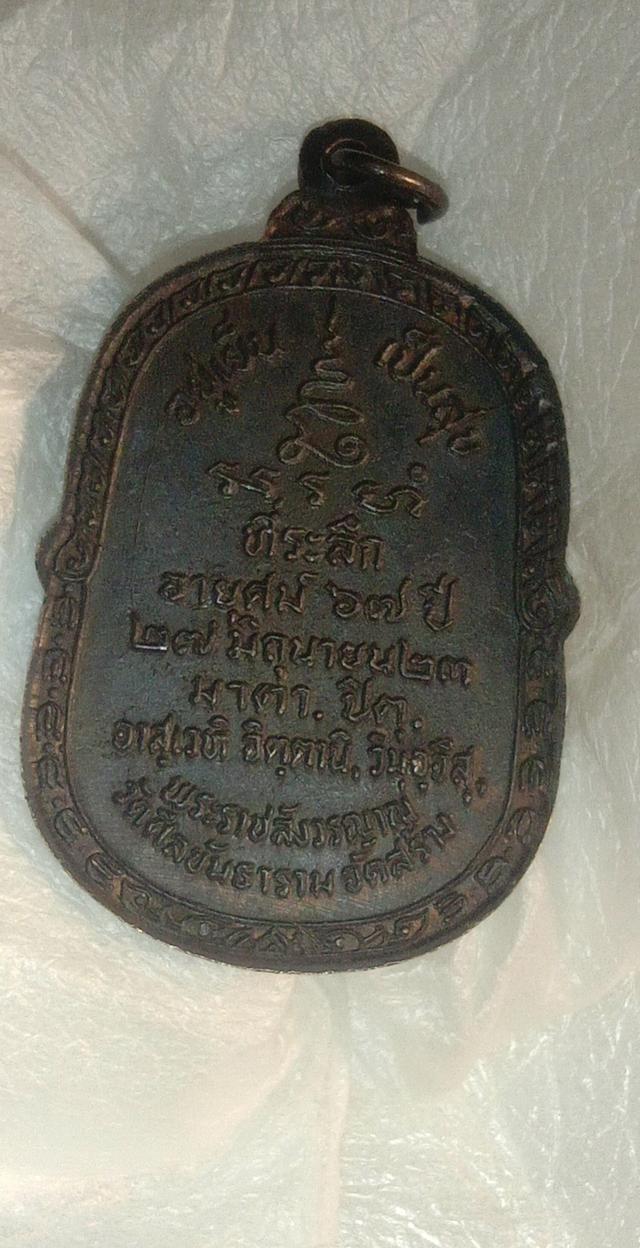 อยู่เย็น เป็นสุข
ที่ระลึก
อายุศม์ ๖๗ ปี
๒๗ มิถุนายน๒๓
มาตา. ปิตุ.
อาสุเวหิ จิตฺตานิ, วิมุจฺจึสุ,
พระราชสังวรญาณ
วัดศีลขันธาราม จัดสร้าง